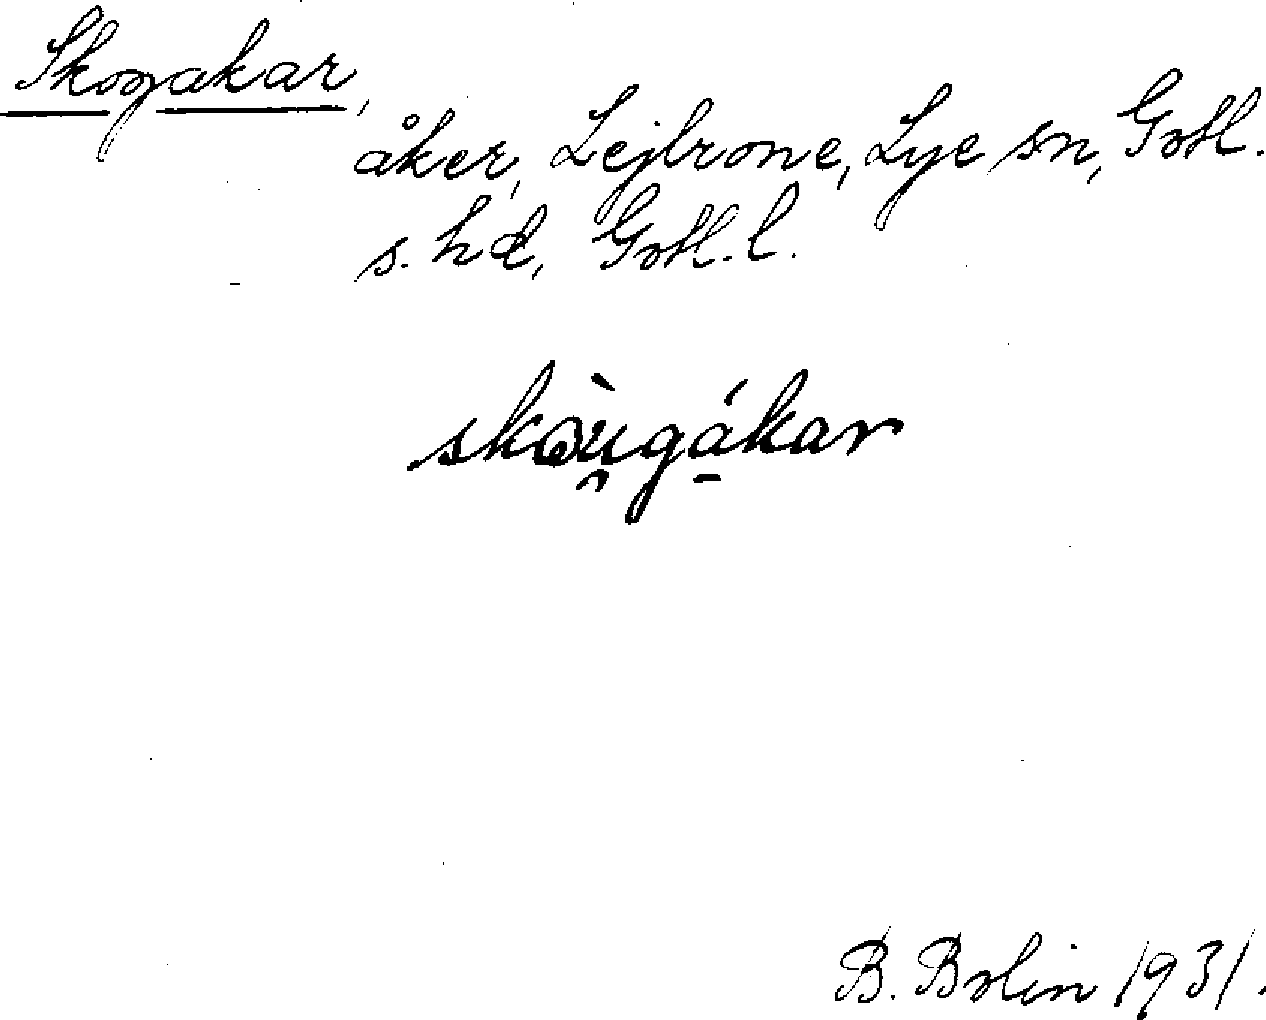 Skogakar,
åker, Lejbrone, Lye sn, Gotl.
s. hd, Gotl. l.
skòu̯gá̱kar
B. Bolin 1931.